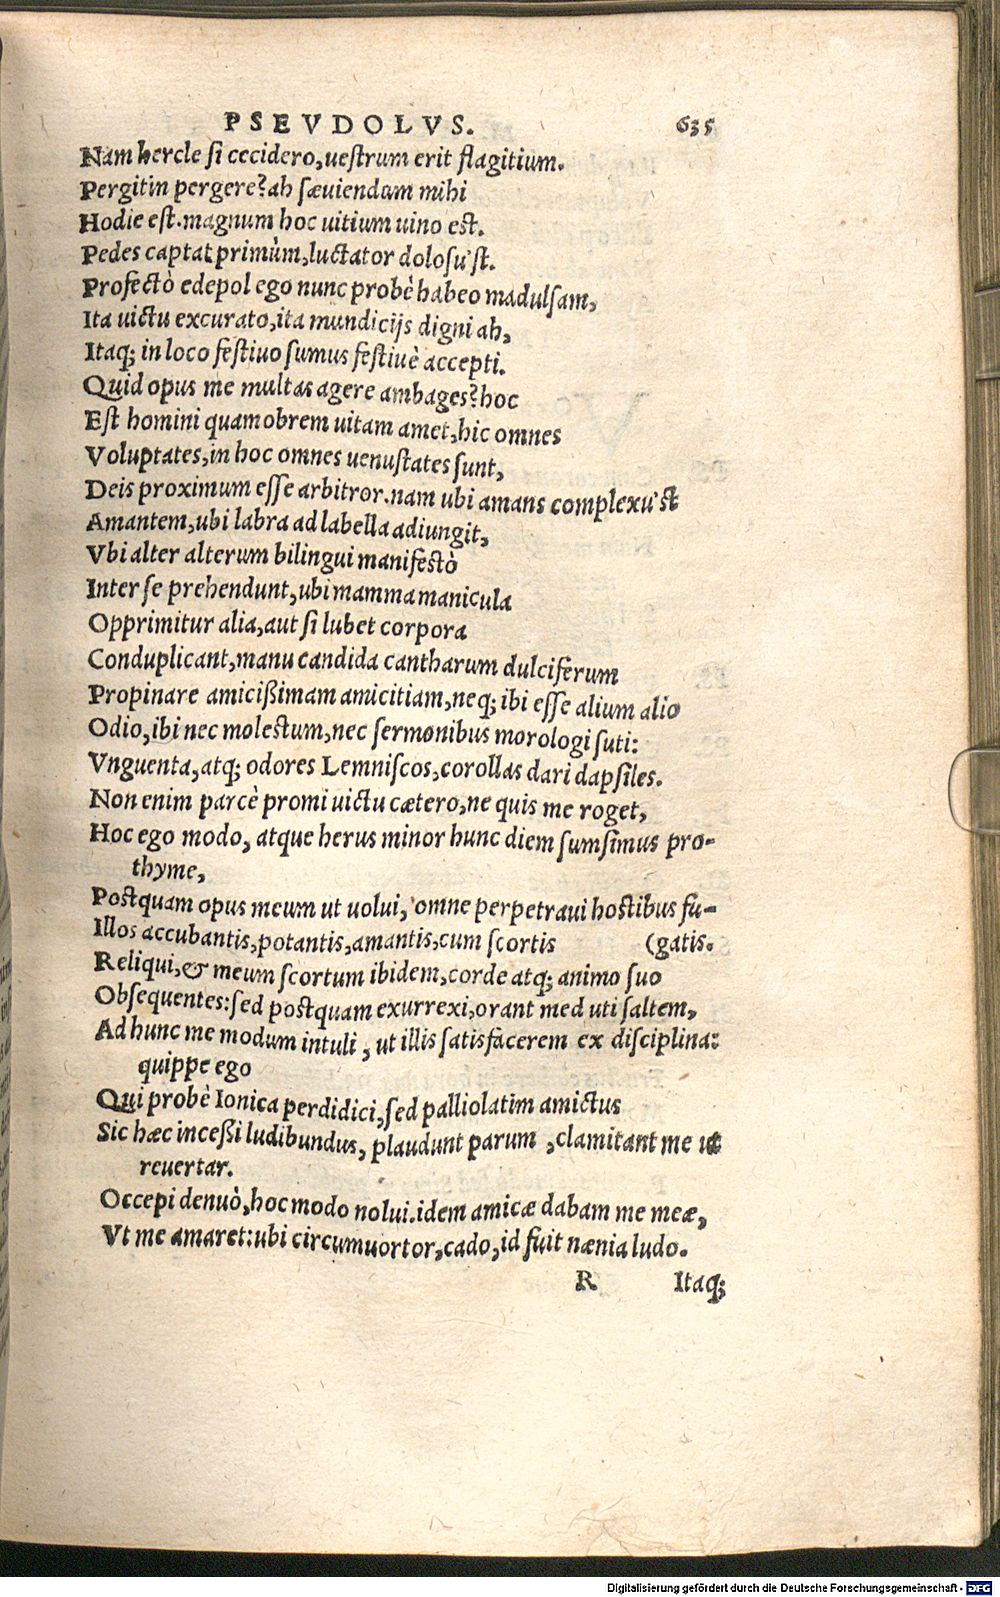 PSEVDOLVS. 635
Nam hercle si cecidero, uestrum erit flagitium.
Pergitin pergere? ah sæuiendum mihi
Hodie est. magnum hoc uitium uino est.
Pedes captat primùm, luctator dolosu'st.
Profectò edepol ego nunc probè habeo madulsam,
Ita uictu excurato, ita mundicijs digni ah,
Itaq; in loco festiuo sumus festiuè accepti.
Quid opus me multas agere ambages? hoc
Est homini quamobrem uitam amet, hic omnes
Voluptates, in hoc omnes uenustates sunt,
Deis proximum esse arbitror. nam ubi amans complexu'st
Amantem, ubi labra ad labella adiungit,
Vbi alter alterum bilingui manifestò
Inter se prehendunt, ubi mamma manicula
Opprimitur alia, aut si lubet corpora
Conduplicant, manu candida cantharum dulciferum
Propinare amicißimam amicitiam, neq; ibi esse alium alio
Odio, ibi nec molestum, nec sermonibus morologi suti:
Vnguenta, atq; odores Lemniscos, corollas dari dapsiles.
Non enim parcè promi uictu cætero, ne quis me roget,
Hoc ego modo, atque herus minor hunc diem sumsimus pro-
thyme,
Postquam opus meum ut uolui, omne perpetraui hostibus fu-
Illos accubantis, potantis, amantis, cum scortis (gatis.
Reliqui, & meum scortum ibidem, corde atq; animo suo
Obsequentes: sed postquam exurrexi, orant med uti saltem,
Ad hunc me modum intuli, ut illis satisfacerem ex disciplina:
quippe ego
Qui probè Ionica perdidici, sed palliolatim amictus
Sic hæc inceßi ludibundus, plaudunt parum, clamitant me ut
reuertar.
Occepi denuò, hoc modo nolui. idem amicæ dabam me meæ,
Vt me amaret: ubi circumuortor, cado, id fuit nænia ludo.
R Itaq;
Digitalisierung gefördert durch die Deutsche Forschungsgemeinschaft - DFG